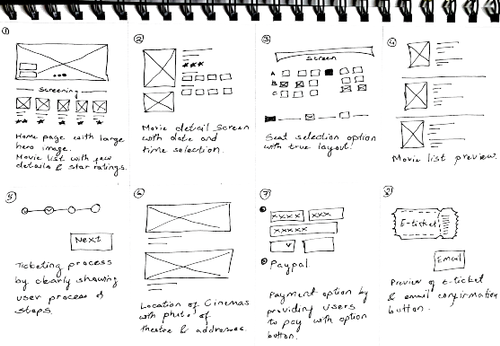 1
Screening
Home page with large
hero image.
Movie list with few
details & star ratings.
2
Movie detail screen
with date and
time selection.
3
Screen
A
B
C
Seat selection option
with true layout!
4
Movie list preview.
5
Next
Ticketing process
by clearly showing
user process of
steps.
6
Location of Cinemas
with photo of
theatre & addresses.
7
xxxx xxx
xxxxx
Paypal
Payment option by
providing users
to pay with option
button.
8
E-ticket
Email
Preview of e-ticket
& email confirmation
button.